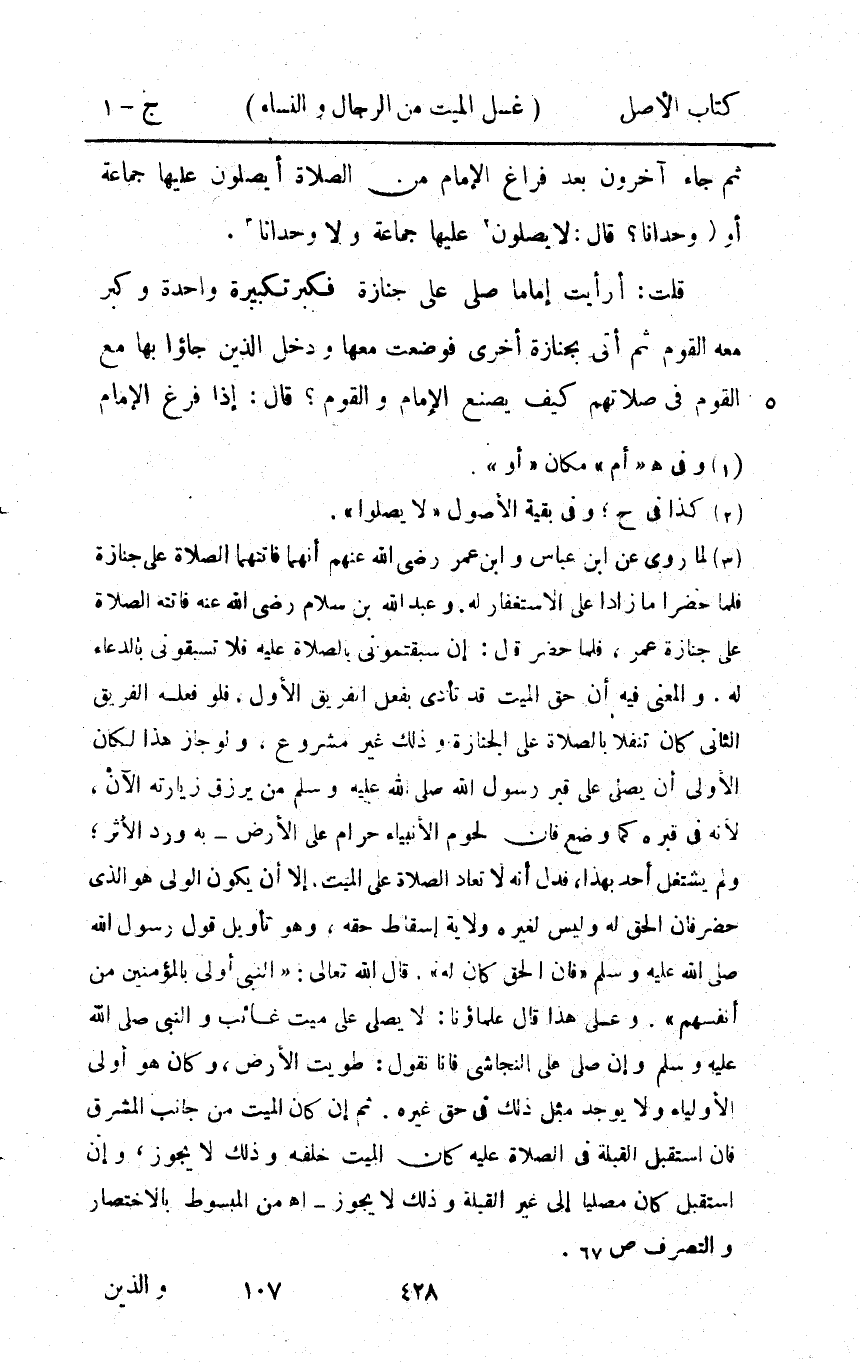 كتاب الأصل ( غسل الميت من الرجال و النساء ) ج - ١
ثم جاء آخرون بعد فراغ الإمام من الصلاة أيصلون عليها جماعة
أو(١ وحدانا؟ قال: لا يصلون٢ عليها جماعة و لا وحدانا٣ .
قلت: أرأيت إماما صلى على جنازة فكبر تكبيرة واحدة و كبر
معه القوم ثم أتى بجنازة أخرى فوضعت معها و دخل الذين جاؤا بها مع
القوم فى صلاتهم كيف يصنع الإمام و القوم ؟ قال : إذا فرغ الإمام ٥
(١) و فى ه «أم» مكان «أو» .
(٢) كذا فى ح ؛ و فى بقية الأصول «لا يصلوا» .
(٣) لما روى عن ابن عباس و ابن عمر رضى الله عنهم أنهما فاتتهما الصلاة على جنازة
فلما حضرا ما زادا على الاستغفار له. و عبد الله بن سلام رضى الله عنه فاتته الصلاة
على جنازة عمر ، فلما حضر قال : إن سبقتمونى بالصلاة عليه فلا تسبقونى بالدعاء
له . و المعنى فيه أن حق الميت قد تأدى بفعل الفريق الأول ، فلو فعله الفريق
الثانى كان تنفلا بالصلاة على الجنازة و ذلك غير مشروع ، و لو جاز هذا لكان
الأولى أن يصلى على قبر رسول الله صلى الله عليه و سلم من يرزق زيارته الآن ،
لأنه فى قبره كما وضع فان لحوم الأنبياء حرام على الأرض - به ورد الأثر ؛
ولم يشتغل أحد بهذا، فدل أنه لا تعاد الصلاة على الميت. إلا أن يكون الولى هو الذى
حضر فان الحق له وليس لغيره ولاية إسقاط حقه ، وهو تأويل قول رسول الله
صلى الله عليه و سلم «فان الحق كان له» . قال الله تعالى : «النبى أولى بالمؤمنين من
أنفسهم» . و على هذا قال علماؤنا : لا يصلى على ميت غائب و النبى صلى الله
عليه و سلم و إن صلى على النجاشى فانا نقول : طويت الأرض ، و كان هو أولى
الأولياء و لا يوجد مثل ذلك فى حق غيره . ثم إن كان الميت من جانب المشرق
فان استقبل القبلة فى الصلاة عليه كان الميت خلفه و ذلك لا يجوز ، و إن
استقبل كان مصليا إلى غير القبلة و ذلك لا يجوز - اه من المبسوط بالاختصار
و التصرف ص ٦٧ .
٤٢٨ ١٠٧ و الذين